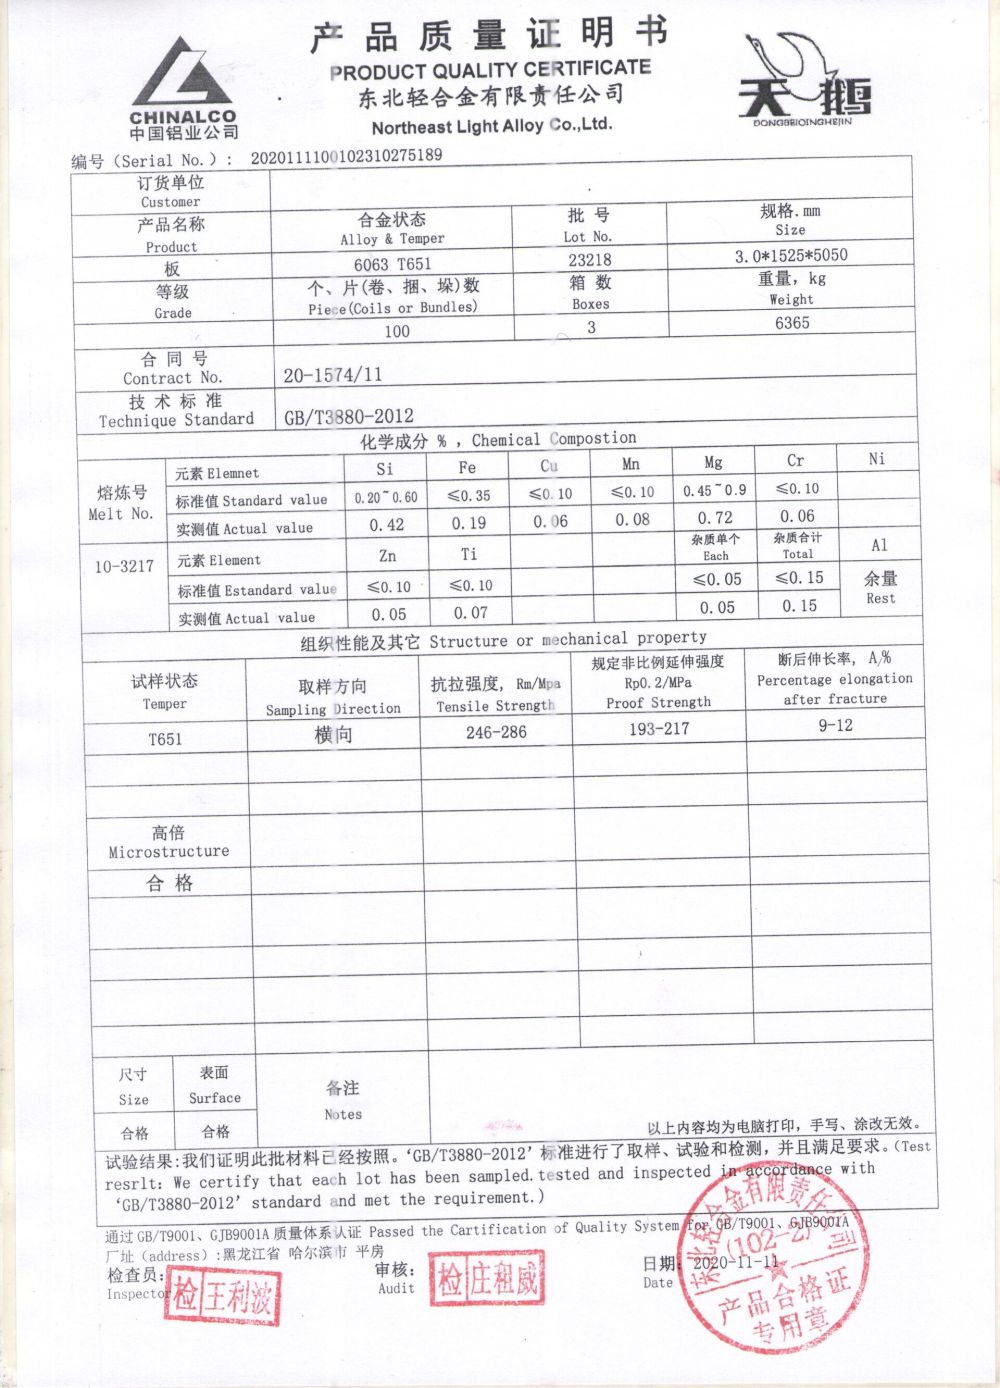 产品质量证明书
PRODUCT QUALITY CERTIFICATE
东北轻合金有限责任公司
Northeast Light Alloy Co.,Ltd.
CHINALCO
中国铝业公司
天鹅
DONGBEIQINGHEJIN
编号（Serial No.）: 2020111100102310275189
订货单位
Customer
产品名称 合金状态 批 号 规格.mm
Product Alloy & Temper Lot No. Size
板 6063 T651 23218 3.0*1525*5050
等级 个、片(卷、捆、垛)数 箱 数 重量，kg
Grade Piece(Coils or Bundles) Boxes Weight
100 3 6365
合 同 号
Contract No. 20-1574/11
技 术 标 准
Technique Standard GB/T3880-2012
化学成分 % ，Chemical Compostion
熔炼号
Melt No.
元素 Elemnet Si Fe Cu Mn Mg Cr Ni
标准值 Standard value 0.20~0.60 ≤0.35 ≤0.10 ≤0.10 0.45~0.9 ≤0.10
实测值 Actual value 0.42 0.19 0.06 0.08 0.72 0.06
10-3217
元素 Element Zn Ti 杂质单个 Each 杂质合计 Total Al
标准值 Estandard value ≤0.10 ≤0.10 ≤0.05 ≤0.15 余量
Rest
实测值 Actual value 0.05 0.07 0.05 0.15
组织性能及其它 Structure or mechanical property
试样状态 取样方向 抗拉强度，Rm/Mpa 规定非比例延伸强度 断后伸长率，A/%
Temper Sampling Direction Tensile Strength Rp0.2/MPa Percentage elongation
Proof Strength after fracture
T651 横向 246-286 193-217 9-12
高倍
Microstructure
合 格
尺寸 表面 备注
Size Surface Notes
合格 合格
以上内容均为电脑打印，手写、涂改无效。
试验结果:我们证明此批材料已经按照。‘GB/T3880-2012’标准进行了取样、试验和检测，并且满足要求。(Test
resrlt: We certify that each lot has been sampled.tested and inspected in accordance with
‘GB/T3880-2012’ standard and met the requirement.)
通过 GB/T9001、GJB9001A 质量体系认证 Passed the Cartification of Quality System for GB/T9001、GJB9001A
厂址（address）:黑龙江省 哈尔滨市 平房
检查员: 审核: 日期: 2020-11-11
Inspector Audit Date
检 王利波
检 庄租威
东北轻合金有限责任公司
(102-2)
产品合格证
专用章